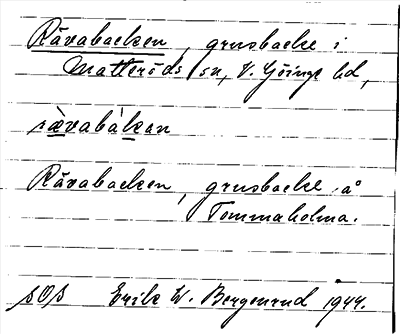 Rävabacken, grusbacke i
Matteröds sn, V. Göinge hd,
rä̀vabàkan
Rävabacken, grusbacke å
Tommaholma.
SOS Erik W. Bergenrud 1944.